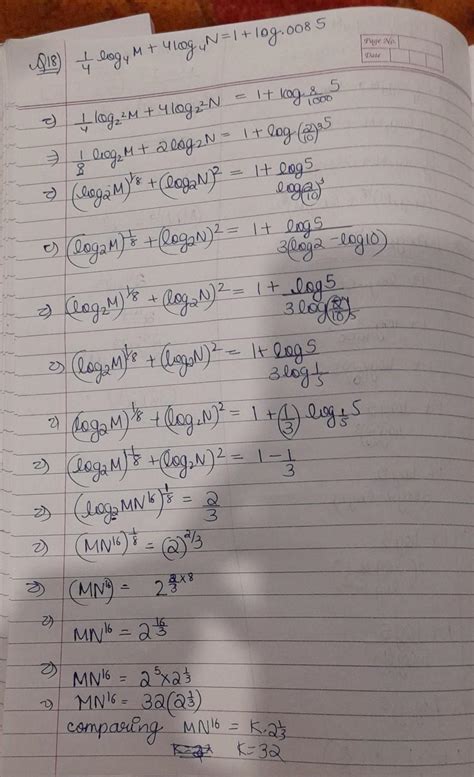 Q18) 1/4 log₄M + 4log₄N = 1 + log.008 5
Page No.
Date
=) 1/4 log₂²M + 4log₂²N = 1 + log 8/1000 5
=) 1/8 log₂M + 2log₂N = 1 + log(2/10)³5
=) (log₂M)^1/8 + (log₂N)² = 1 + log5/log(2/10)³
=) (log₂M)^1/8 + (log₂N)² = 1 + log5/3(log2 - log10)
=) (log₂M)^1/8 + (log₂N)² = 1 + log5/3log(2/10)
=) (log₂M)^1/8 + (log₂N)² = 1 + log5/3log 1/5
=) (log₂M)^1/8 + (log₂N)² = 1 + (1/3) log 1/5 5
=) (log₂M)^1/8 + (log₂N)² = 1 - 1/3
=) (log₂MN¹⁶)^1/8 = 2/3
=) (MN¹⁶)^1/8 = (2)^2/3
=) (MN¹⁶) = 2^2/3 × 8
=) MN¹⁶ = 2^16/3
=) MN¹⁶ = 2⁵ × 2^1/3
=) MN¹⁶ = 32(2^1/3)
comparing MN¹⁶ = K.2^1/3
K=32